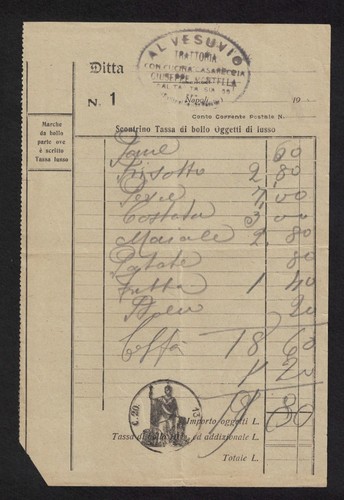 AL VESUVIO
TRATTORIA
CON CUCINA CASARECCIA
GIUSEPPE
Ditta
N. 1
Napoli, 19
Conto Corrente Postale N.
Marche
da bollo
parte ove
è scritto
Tassa lusso
Scontrino Tassa di bollo Oggetti di lusso
Pane 60
Risotto 2.80
Pesce 7,00
Costata 3 00
Maiale 2.80
Patate 80
Frutta 1 40
20
Caffè 18 60
1 20
C. 20.
19 80
Importo oggetti L.
Tassa di bollo ed addizionale L.
Totale L.